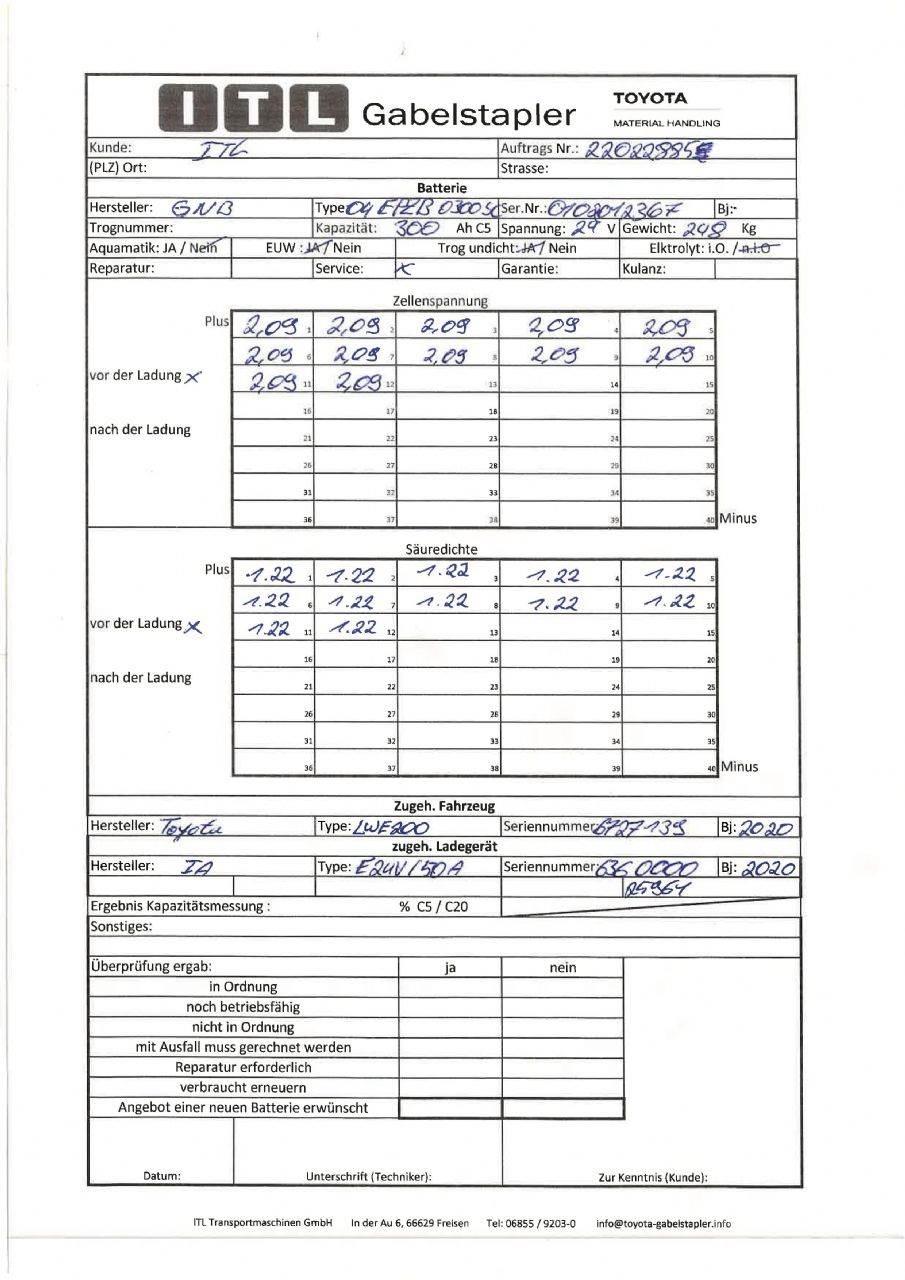 ITL Gabelstapler TOYOTA
MATERIAL HANDLING
Kunde: ITL Auftrags Nr.: 22022885
(PLZ) Ort: Strasse:
Batterie
Hersteller: GNB Type: 04 EPZB 0300 Ser.Nr.: 0108012367 Bj:-
Trognummer: Kapazität: 300 Ah C5 Spannung: 24 V Gewicht: 248 Kg
Aquamatik: JA / Nein EUW : JA / Nein Trog undicht: JA / Nein Elktrolyt: i.O. / n.i.O
Reparatur: Service: x Garantie: Kulanz:
Zellenspannung
Plus 2,09 1 2,09 2 2,09 3 2,09 4 2,09 5
2,09 6 2,09 7 2,09 8 2,09 9 2,09 10
vor der Ladung x 2,09 11 2,09 12 13 14 15
16 17 18 19 20
nach der Ladung 21 22 23 24 25
26 27 28 29 30
31 32 33 34 35
36 37 38 39 40 Minus
Säuredichte
Plus 1.22 1 1.22 2 1.22 3 1.22 4 1.22 5
1.22 6 1.22 7 1.22 8 1.22 9 1.22 10
vor der Ladung x 1.22 11 1.22 12 13 14 15
16 17 18 19 20
nach der Ladung 21 22 23 24 25
26 27 28 29 30
31 32 33 34 35
36 37 38 39 40 Minus
Zugeh. Fahrzeug
Hersteller: Toyota Type: LWE200 Seriennummer: 6727139 Bj: 2020
zugeh. Ladegerät
Hersteller: IA Type: E24V/50A Seriennummer: 636 0000 Bj: 2020
25964
Ergebnis Kapazitätsmessung : % C5 / C20
Sonstiges:
Überprüfung ergab: ja nein
in Ordnung
noch betriebsfähig
nicht in Ordnung
mit Ausfall muss gerechnet werden
Reparatur erforderlich
verbraucht erneuern
Angebot einer neuen Batterie erwünscht
Datum: Unterschrift (Techniker): Zur Kenntnis (Kunde):
ITL Transportmaschinen GmbH In der Au 6, 66629 Freisen Tel: 06855 / 9203-0 info@toyota-gabelstapler.info